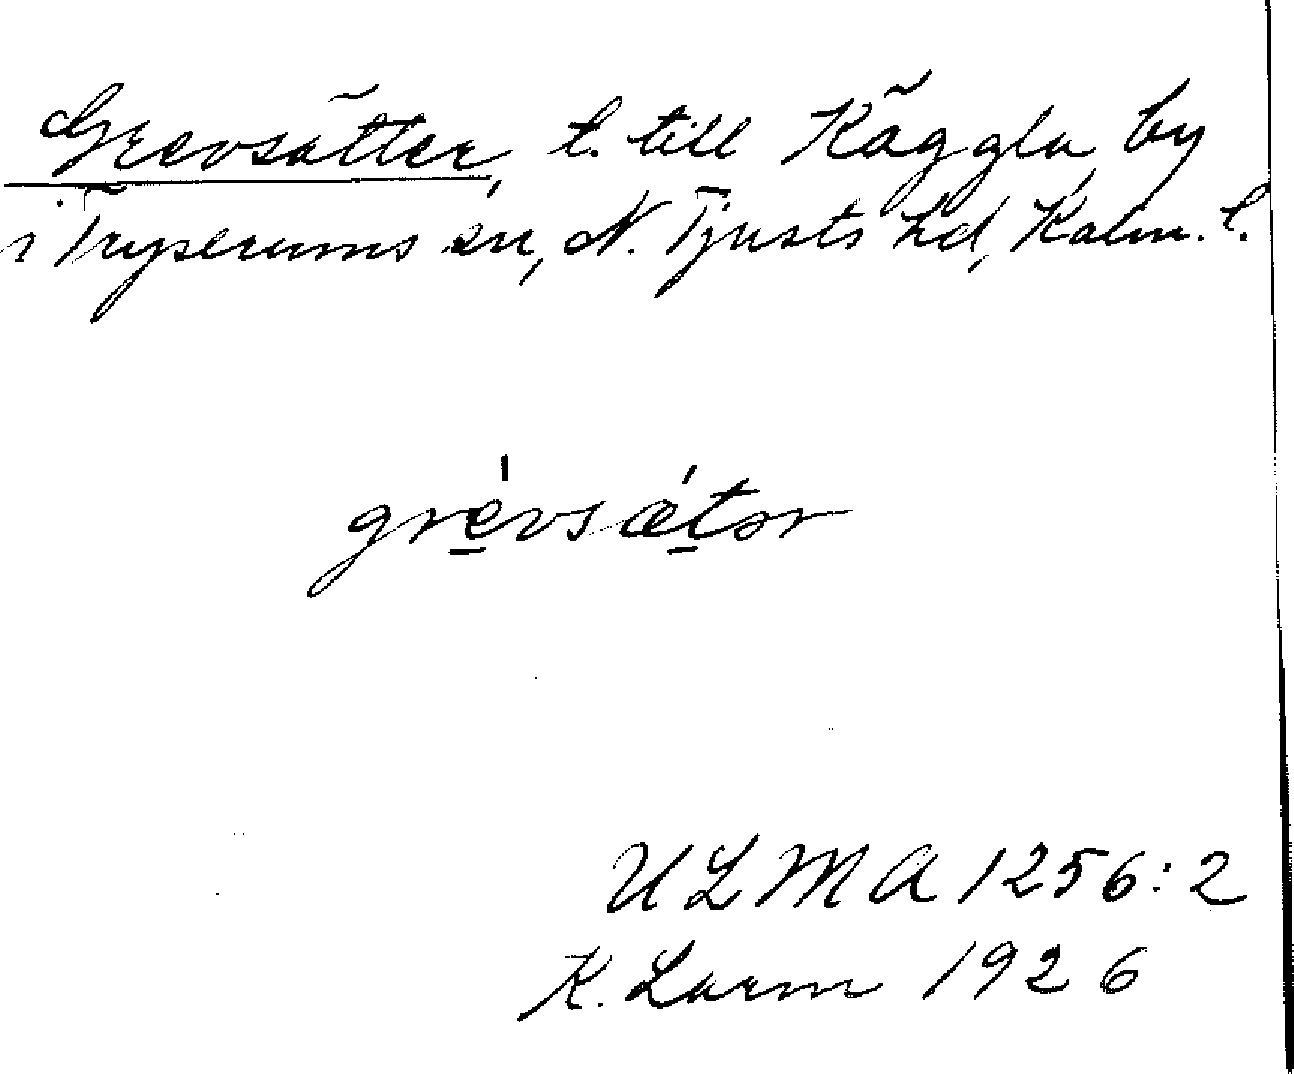 Grevsätter, t. till Käggla by
i Tryserums sn, N. Tjusts hd, Kalm. l.
grèvsǽtər
ULMA 1256:2
K. Larm 1926